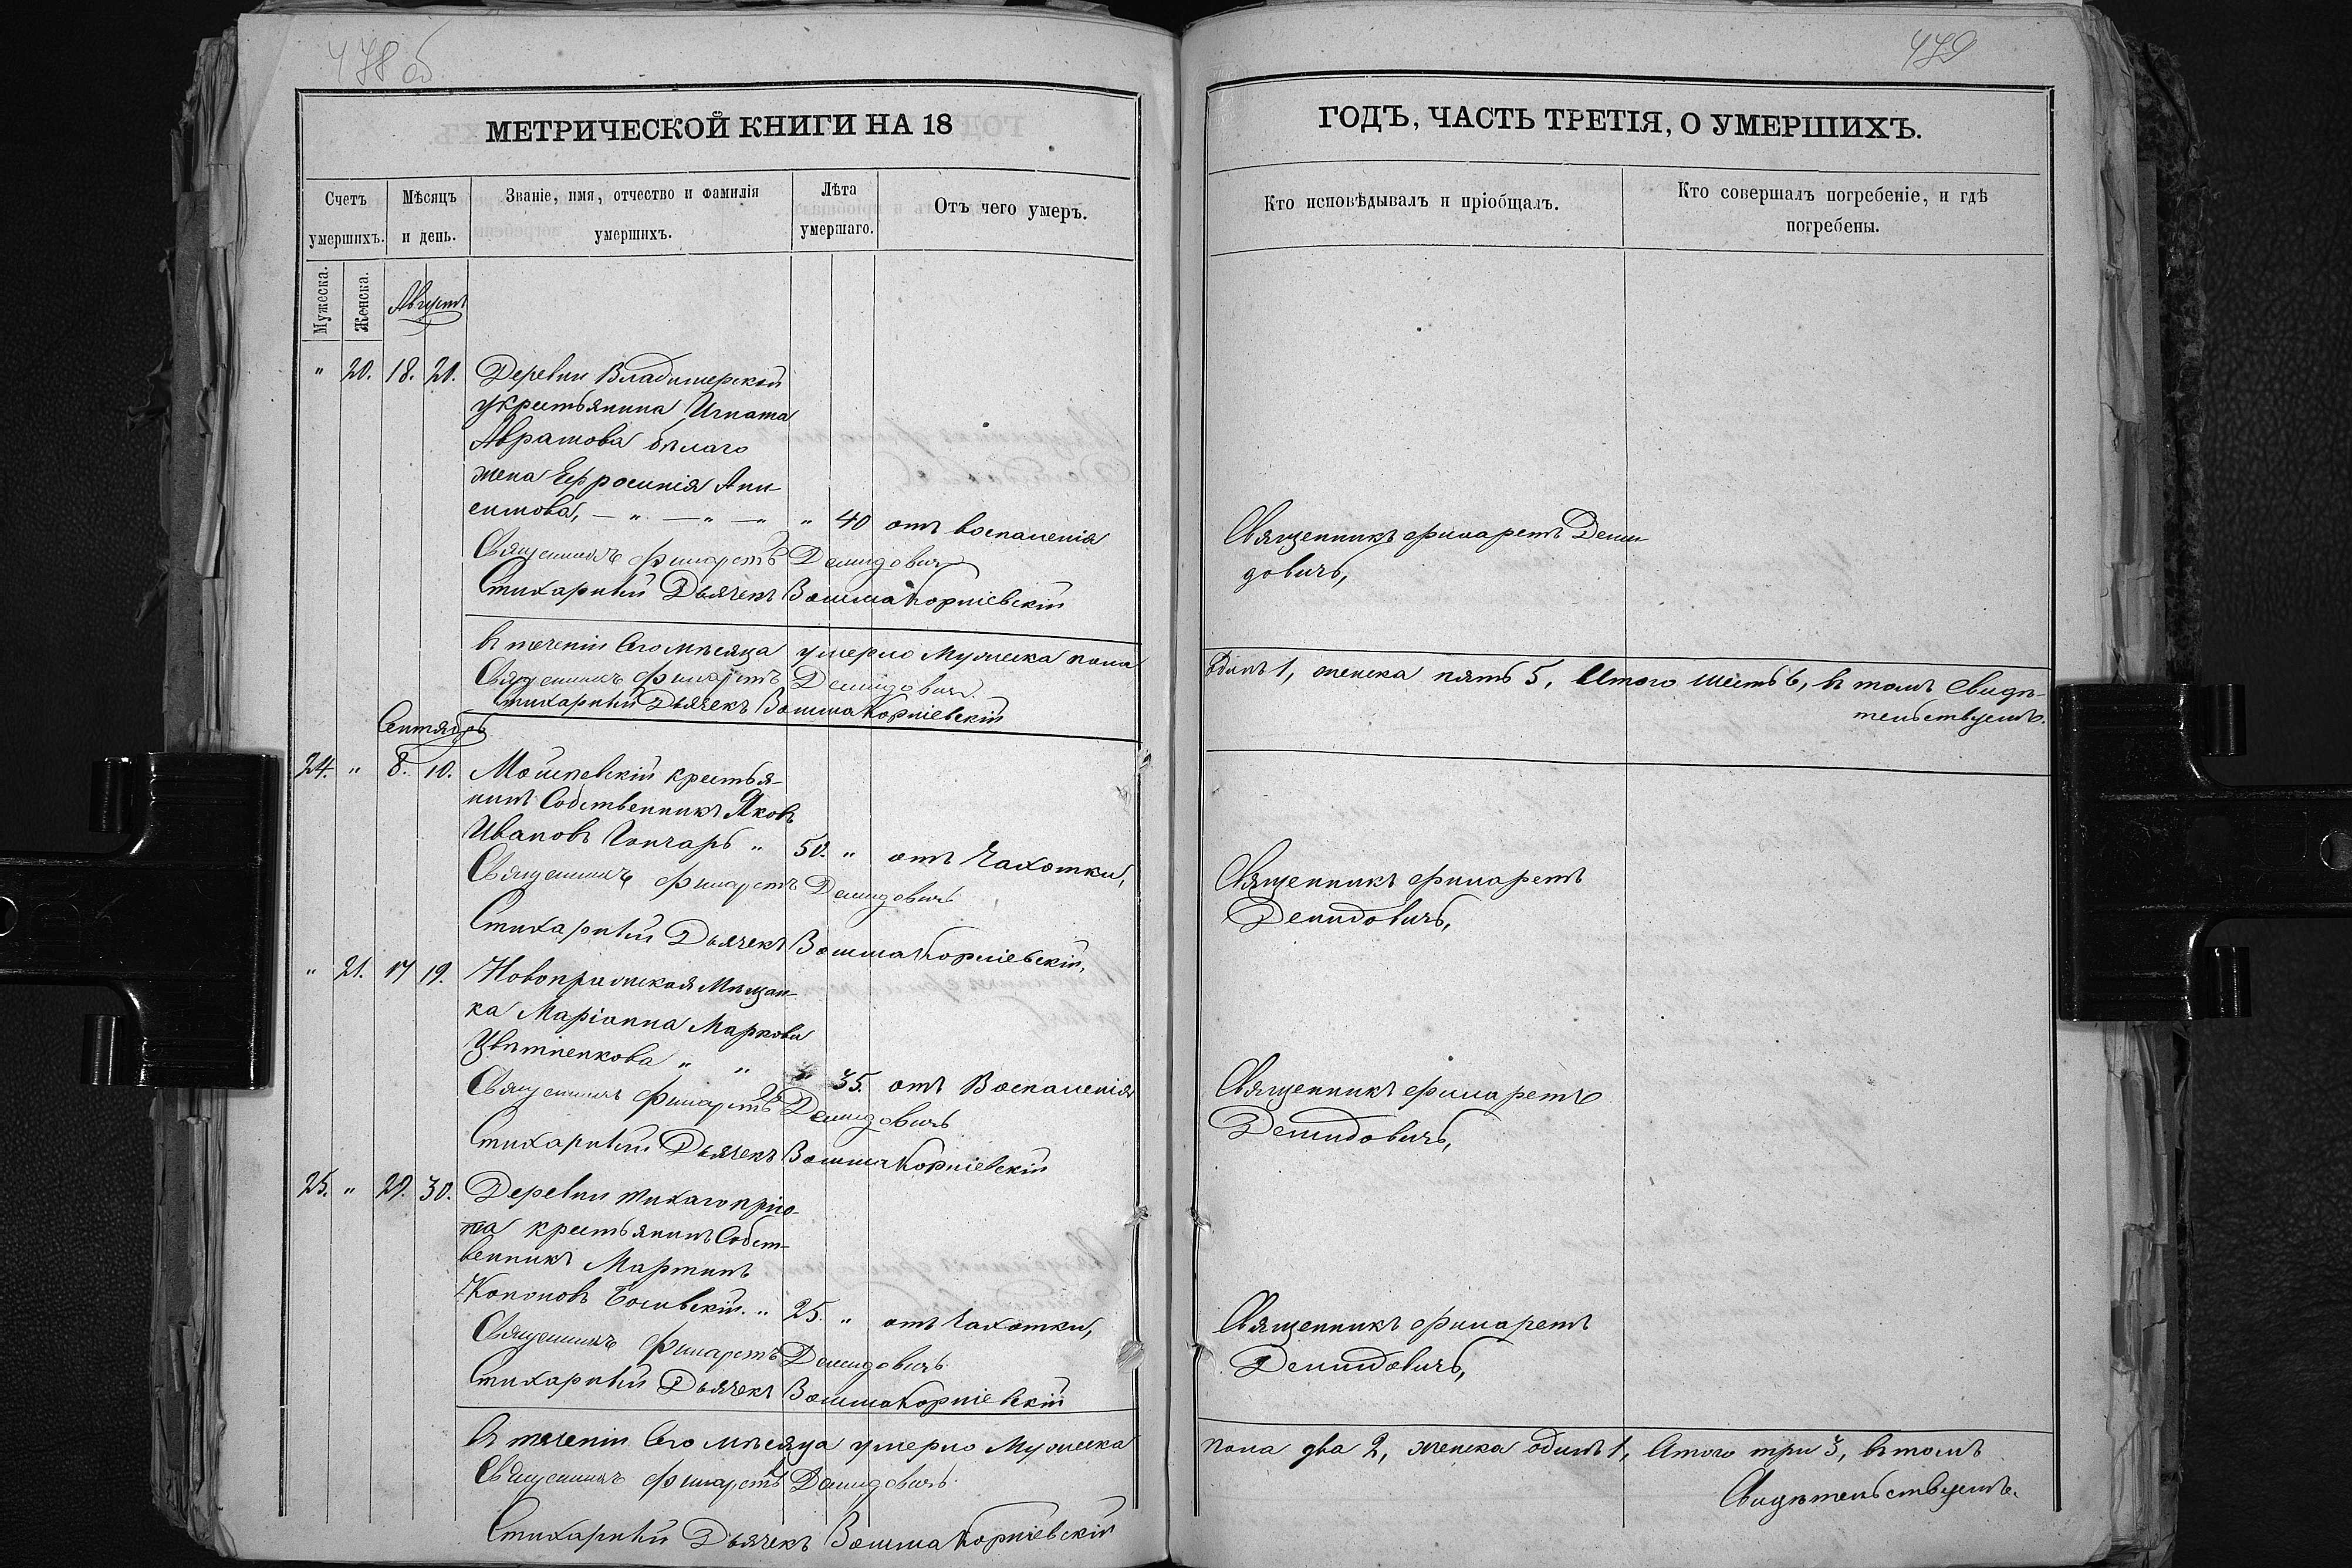 478 об
МЕТРИЧЕСКОЙ КНИГИ НА 18
Счетъ умершихъ.
Мѣсяцъ и день.
Званіе, имя, отчество и фамилія умершихъ.
Лѣта умершаго.
Отъ чего умеръ.
Мужеска.
Женска.
Августъ
" 20. 18. 21. Деревни Владимерской
у крестьянина Игната
Аврамова Бѣлаго
жена Ефросинія Ани-
симова, — " — " — " " 40 отъ воспаленія
Священникъ Филаретъ Демидовичъ
Стихарный Дьячекъ Корніевскій
въ теченіи сего мѣсяца умерло Мужеска пола
Священникъ Филаретъ Демидовичъ.
Стихарный Дьячекъ Корніевскій
Сентябрь
24. " 8. 10. крестья-
нинъ Собственникъ Яковъ
Ивановъ Гончаръ " 50. " отъ Чахотки,
Священникъ Филаретъ Демидовичъ
Стихарный Дьячекъ Корніевскій,
" 21. 17 19. Новопражская Мѣщан-
ка Маріанна Маркова
Цвѣтненкова " " " 35. отъ Воспаленія
Священникъ Филаретъ Демидовичъ
Стихарный Дьячекъ Корніевскій
25. " 29. 30. Деревни тихаго прію-
та крестьянинъ Собст-
венникъ Мартинъ
Кононовъ " 25. " отъ Чахотки,
Священникъ Филаретъ Демидовичъ
Стихарный Дьячекъ Корніевскій
въ теченіи сего мѣсяца умерло Мужеска
Священникъ Филаретъ Демидовичъ.
Стихарный Дьячекъ Корніевскій
479
ГОДЪ, ЧАСТЬ ТРЕТІЯ, О УМЕРШИХЪ.
Кто исповѣдывалъ и пріобщалъ.
Кто совершалъ погребеніе, и гдѣ
погребены.
Священникъ Филаретъ Деми-
довичъ,
одинъ 1, женска пять 5, Итого шесть 6, въ томъ свидѣ-
тельствуемъ.
Священникъ Филаретъ
Демидовичъ,
Священникъ Филаретъ
Демидовичъ,
Священникъ Филаретъ
Демидовичъ,
пола два 2, женска одинъ 1, Итого три 3, въ томъ
Свидѣтельствуемъ.